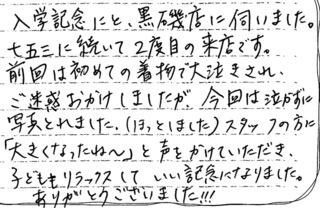 入学記念にと、黒磯店に伺いました。
七五三に続いて2度目の来店です。
前回は初めての着物で大泣きされ、
ご迷惑おかけしましたが、今回は泣かずに
写真とれました。(ほっとしました)スタッフの方に
「大きくなったね〜」と声をかけていただき、
子どももリラックスして いい記念になりました。
ありがとうございました!!!